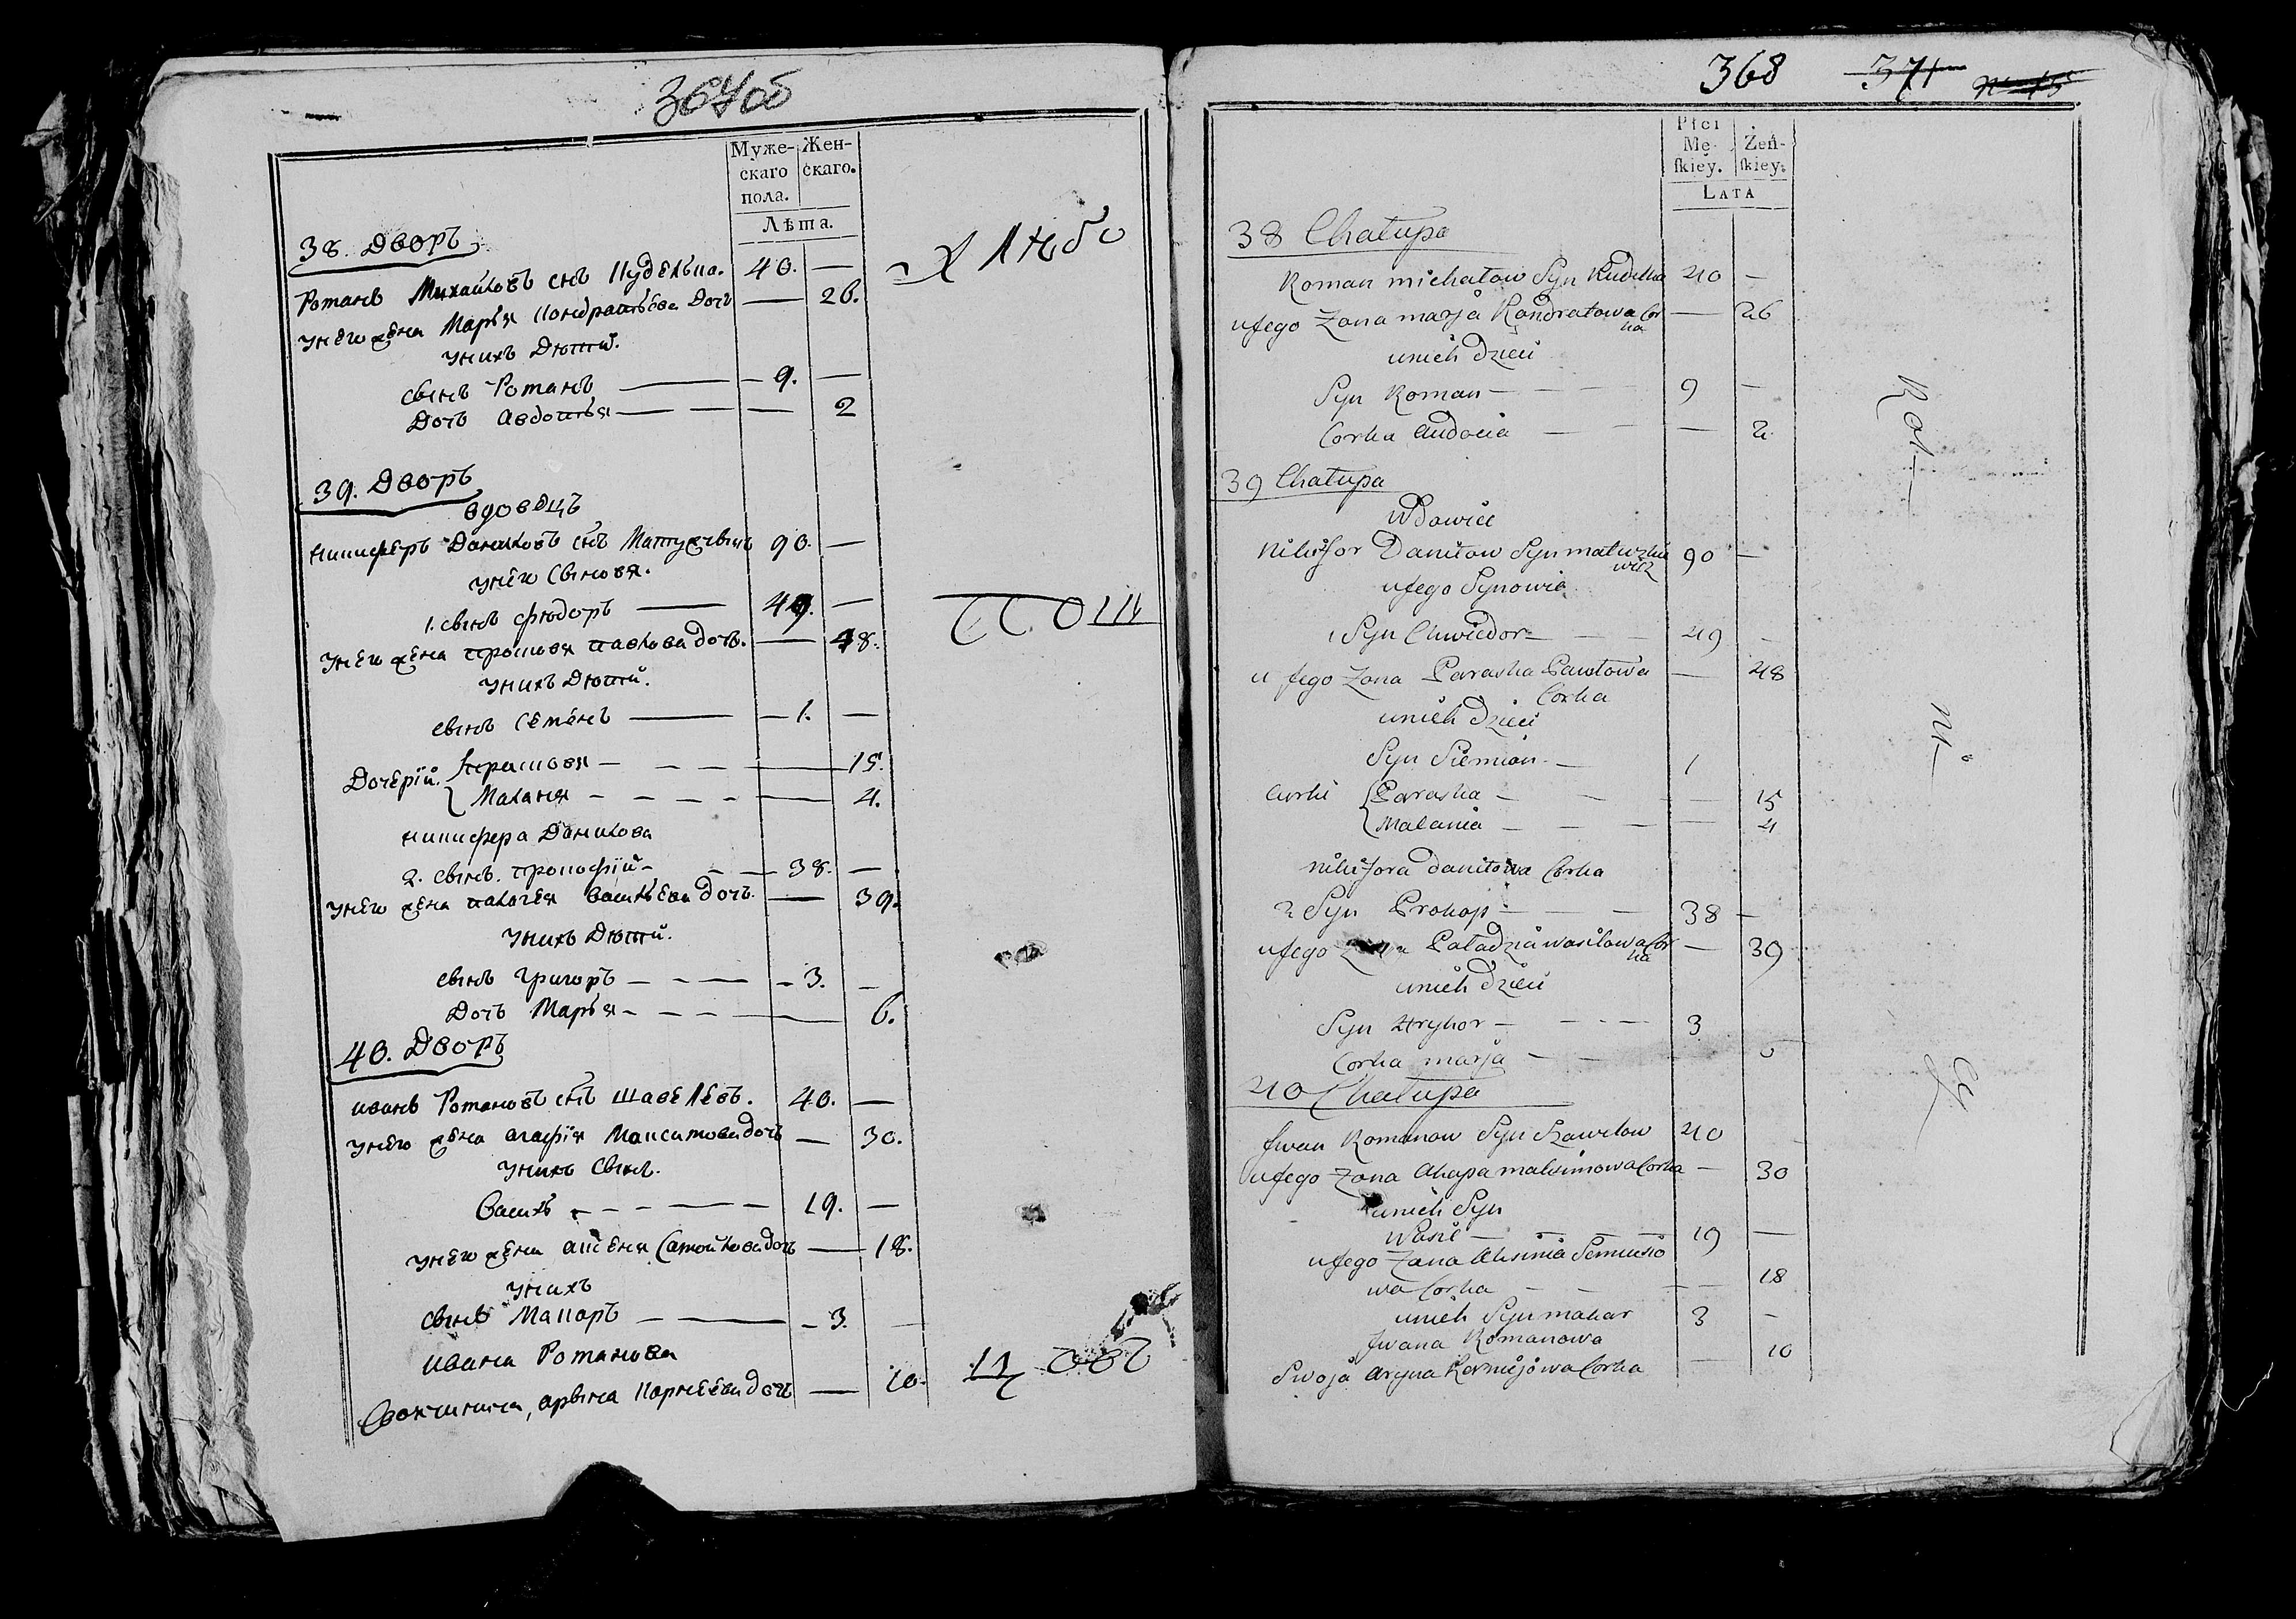 367об
Муже-
скаго
пола.
Жен-
скаго.
Лѣта.
38. Дворъ
Романъ Михайловъ снъ Куделка. 40. —
У него жена Марья Кондратьева дочь — 26.
У нихъ дѣти.
Сынъ Романъ — 9. —
Дочь Авдотья — — 2
Хлѣбо
39. Дворъ
вдовецъ
Никиферъ Даниловъ снъ Матущевичъ 90. —
У него сыновя.
1. сынъ Фѣдоръ — 49. —
У него жена Прасковя Павлова дочь. — 48.
У нихъ дѣти.
Сынъ Семенъ — 1. —
Дочерій. Прасковя — — 15.
Маланя — — 4.
Никифера Данилова
2. сынъ. Прокофій — 38. —
У него жена Палагея Васильева дочь. — 39.
У нихъ дѣти.
Сынъ Григоръ — 3. —
Дочь Марья — — 6.
паш
40. Дворъ
Иванъ Романовъ снъ Шавелевъ. 40. —
У него жена Агафія Максимова дочь — 30.
У нихъ сынъ.
Василь — 19. —
У него жена Аксеня Самойлова дочь — 18.
У нихъ
Сынъ Макаръ — 3. —
Ивана Романова
Своячиница, Арына Корнеева дочь — 10.
368 371
Płci
Mę-
skiey.
Żeń-
skiey.
LATA
38 Chałupa
Roman Michałow Syn Kudelka 40 —
u jego Zona Marja Kondratowa Cor
ka — 26
u nich dzieci
Syn Roman — 9 —
Corka Audocia — — 2
39 Chałupa
Wdowiec
Nikifor Daniłow Syn Matuzke
wicz 90 —
u jego Synowie
1 Syn Chwiedor — 49 —
u jego Zona Paraska Pawłowa — 48
Corka
u nich dzieci
Syn Siemion — 1
Curki Paraska — — 15
Malania — — 4
Nikifora Daniłowa Corka
2 Syn Prokop — 38 —
u jego Zona Paladzia Wasilowa Cor
ka — 39
u nich dzieci
Syn Hryhor — 3
Corka Marja — — 6
40 Chałupa
Jwan Romanow Syn Szawelow 40
u jego Zona Ahapa Maksimowa Corka — 30
u nich Syn
Wasil — 19 —
u jego Zona Aksinia Semusio
wa Corka — — 18
u nich Syn Makar 3 —
Jwana Romanowa
Swoja Aryna Korniejowa Corka — 10